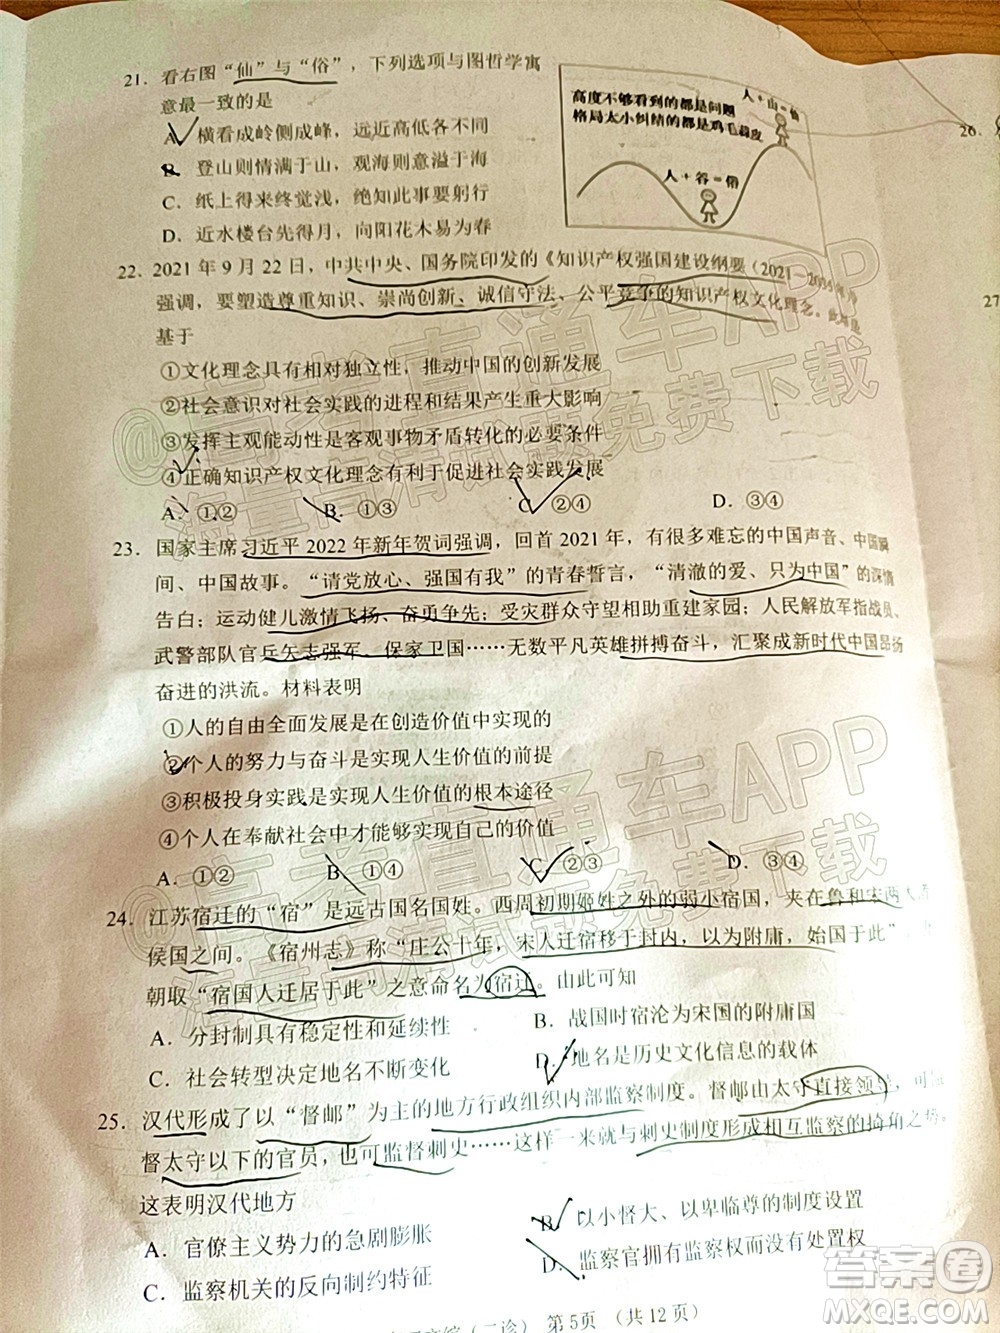 21．看右图“仙”与“俗”，下列选项与图哲学寓
意最一致的是
A．横看成岭侧成峰，远近高低各不同
B．登山则情满于山，观海则意溢于海
C．纸上得来终觉浅，绝知此事要躬行
D．近水楼台先得月，向阳花木易为春
高度不够看到的都是问题
格局太小纠结的都是鸡毛蒜皮
人+山=仙
人+谷=俗
22．2021年9月22日，中共中央、国务院印发的《知识产权强国建设纲要（2021—2035年）》
强调，要塑造尊重知识、崇尚创新、诚信守法、公平竞争的知识产权文化理念。
基于
①文化理念具有相对独立性，推动中国的创新发展
②社会意识对社会实践的进程和结果产生重大影响
③发挥主观能动性是客观事物矛盾转化的必要条件
④正确知识产权文化理念有利于促进社会实践发展
A．①② B．①③ C．②④ D．③④
23．国家主席习近平2022年新年贺词强调，回首2021年，有很多难忘的中国声音、中国瞬
间、中国故事。“请党放心、强国有我”的青春誓言，“清澈的爱、只为中国”的深情
告白；运动健儿激情飞扬、奋勇争先；受灾群众守望相助重建家园；人民解放军指战员、
武警部队官兵矢志强军、保家卫国……无数平凡英雄拼搏奋斗，汇聚成新时代中国昂扬
奋进的洪流。材料表明
①人的自由全面发展是在创造价值中实现的
②个人的努力与奋斗是实现人生价值的前提
③积极投身实践是实现人生价值的根本途径
④个人在奉献社会中才能够实现自己的价值
A．①② B．①④ C．②③ D．③④
24．江苏宿迁的“宿”是远古国名国姓。西周初期姬姓之外的弱小宿国，夹在鲁和宋两大诸
侯国之间。《宿州志》称“庄公十年，宋人迁宿移于封内，以为附庸，始国于此”，
朝取“宿国人迁居于此”之意命名为宿迁。由此可知
A．分封制具有稳定性和延续性 B．战国时宿沦为宋国的附庸国
C．社会转型决定地名不断变化 D．地名是历史文化信息的载体
25．汉代形成了以“督邮”为主的地方行政组织内部监察制度。督邮由太守直接领导，可
督太守以下的官员，也可监督刺史……这样一来，就与刺史制度形成相互监察的掎角之势。
这表明汉代地方
A．官僚主义势力的急剧膨胀 B．以小督大、以卑临尊的制度设置
C．监察机关的反向制约特征 D．监察官拥有监察权而无处置权
（二诊） 第5页 （共12页）
26．
27
@高考直通车APP
海量高清试题免费下载
@高考直通车APP
海量高清试题免费下载
答案圈
MXQE.COM